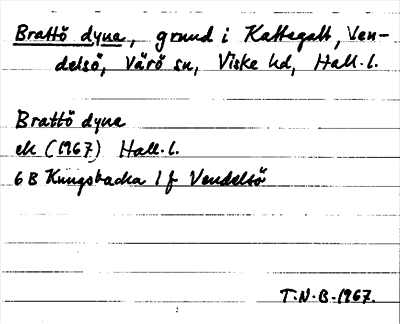 Brattö dyna, grund i Kattegatt, Ven-
delsö, Värö sn, Viske hd, Hall. l.
Brattö dyna
ek (1967) Hall. l.
6 B Kungsbacka 1 f Vendelsö
T.N.B. 1967.